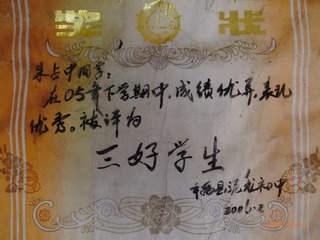 奖状
朱占中同学:
在05年下学期中,成绩优异,表现
优秀。被评为
三好学生
县泥龙初中
2006.2